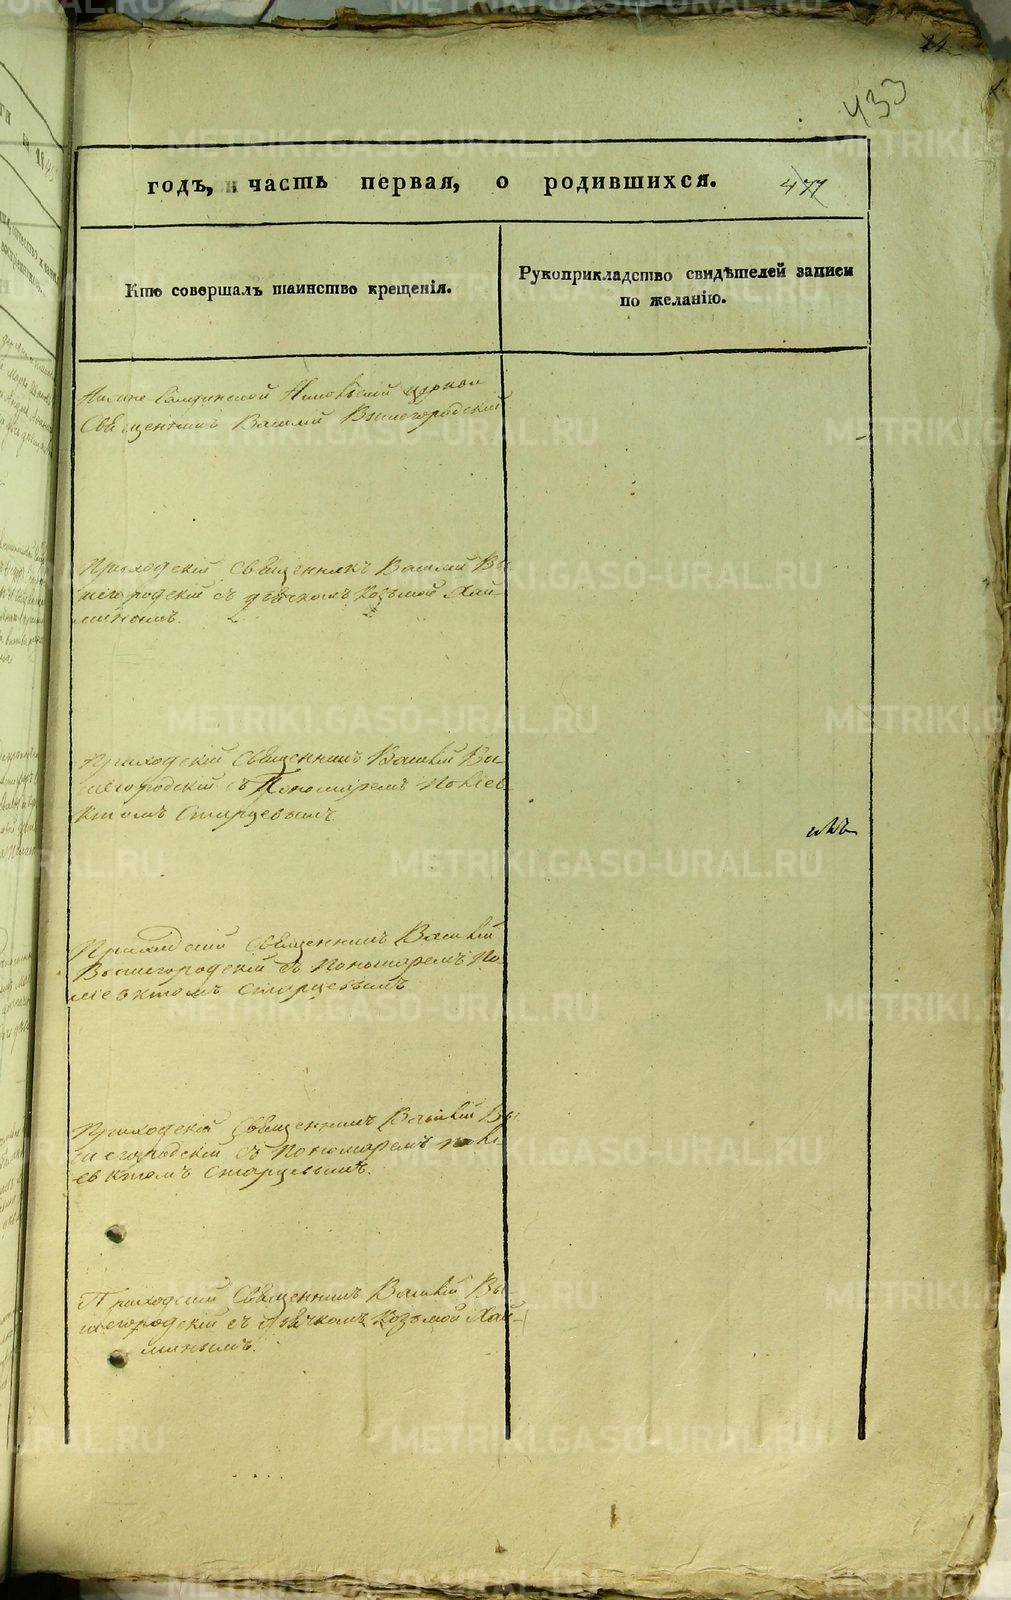 433
годъ, часть первая, о родившихся. 477
Кто совершалъ таинство крещенія.
Рукоприкладство свидѣтелей записи
по желанію.
церкви
Священникъ Василій Вышегородскій
Приходскій Священникъ Василій Вы
шегородскій съ дьячкомъ Козьмой Хай-
минымъ.
Приходскій Священникъ Василій Вы-
шегородскій съ Пономаремъ Полiев
ктомъ Старцевымъ
Приходскій Священникъ Василій
Вышегородскій съ Пономаремъ По
ліевктомъ Старцевымъ
Приходскій Священникъ Василій Вы
шегородскій съ Пономаремъ Полі
евктомъ Старцевымъ.
Приходскій Священникъ Василій Вы
шегородскій съ дьячкомъ Козьмой Хай-
минымъ.
METRIKI.GASO-URAL.RU